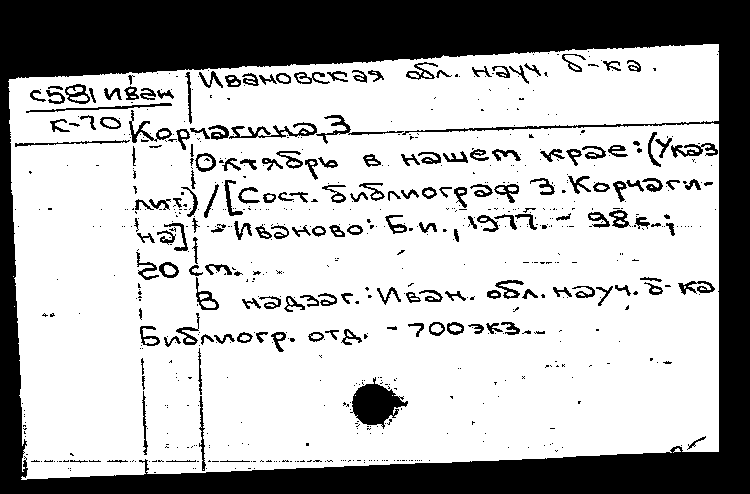 с581 Иван Ивановская обл. науч. б-ка.
К-70 Корчагина, З
Октябрь в нашем крае: (Указ
лит.) / [Сост. библиограф З. Корчаги-
на]. - Иваново: Б.и., 1977. - 98 с.;
20 ст.
В надзаг.: Иван. обл. науч. б-ка
Библиогр. отд. - 700 экз.